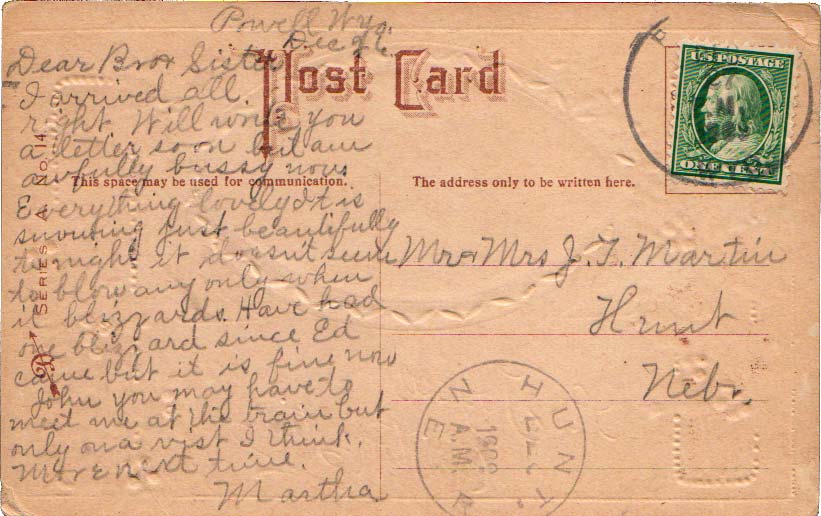 Powell Wyo.
Dec 26
Dear Bro & Sister
I arrived all
right Will write you
a letter soon but am
awfully bussy now
Everything lovely It is
snowing just beautifully
tonight it doesn't seem
to blow any only when
it blizzards. Have had
one blizzard since Ed
came but it is fine now
John you may have to
meet me at the train but
only on a visit I think.
More next time.
Martha
Post Card
This space may be used for communication.
The address only to be written here.
SERIES A. NO. 14
U.S. POSTAGE
ONE CENT
Mr & Mrs J. T. Martin
Hunt
Nebr.
HUNT.
DEC
1909
A.M.
NE